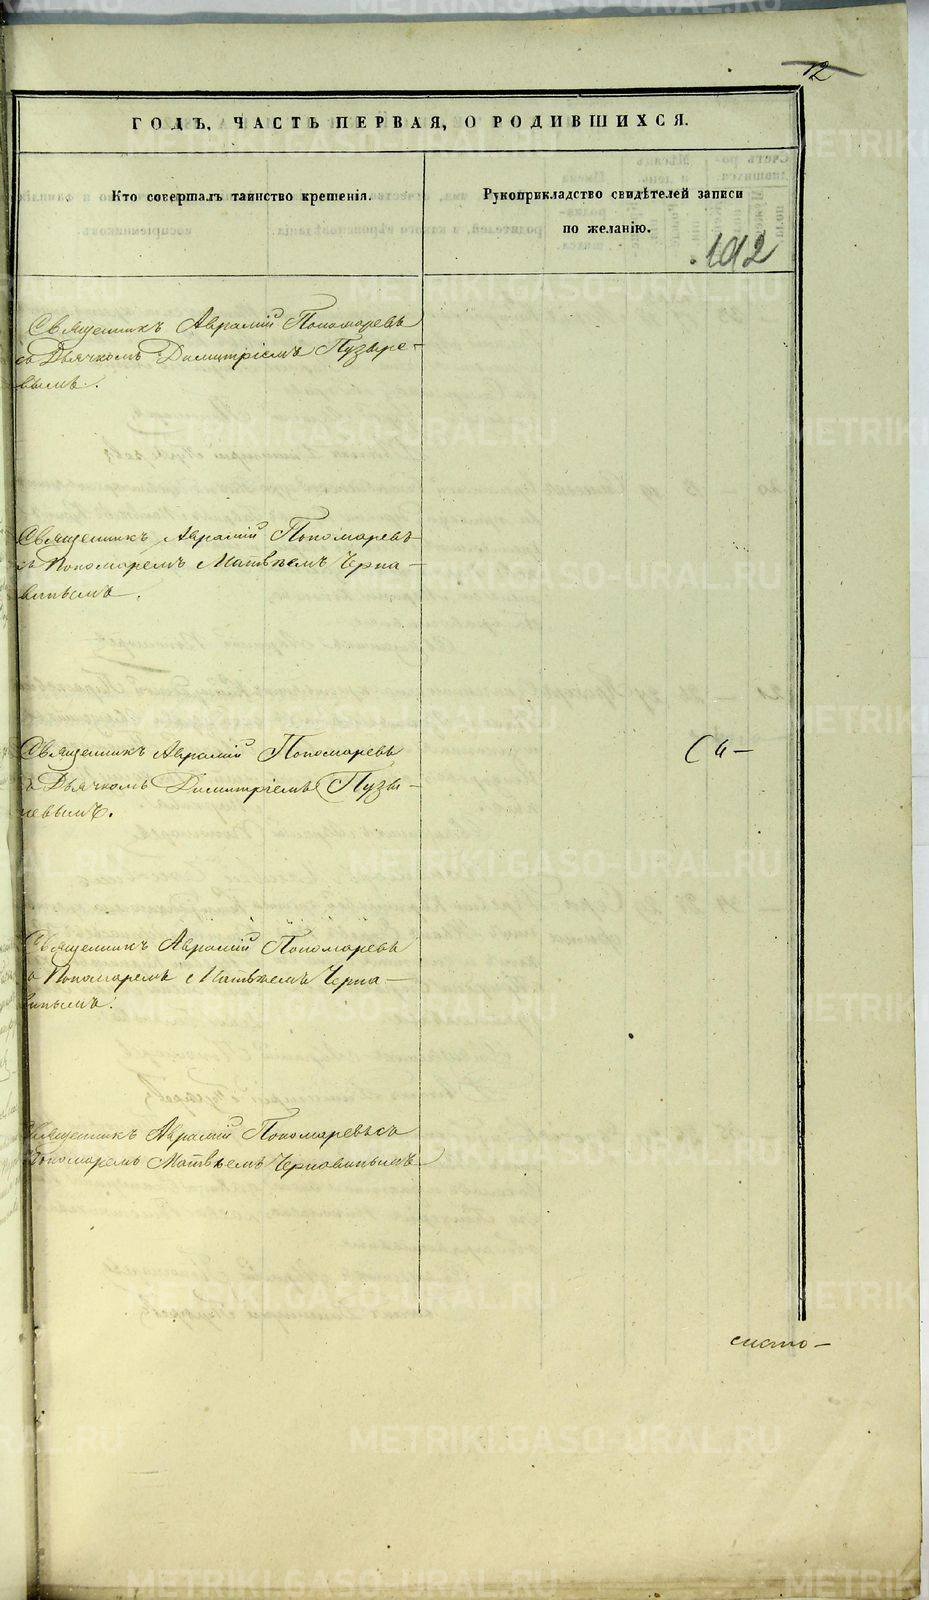 12
ГОДЪ, ЧАСТЬ ПЕРВАЯ, О РОДИВШИХСЯ.
Кто совершалъ таинство крещенія.
Рукоприкладство свидѣтелей записи
по желанію.
1012
Священникъ Аврамій Пономаревъ
съ Дьячкомъ Димитріемъ Пузыре-
вымъ.
Священникъ Аврамій Пономаревъ
съ Пономаремъ Матвѣемъ Черна-
винымъ.
Священникъ Аврамій Пономаревъ
съ Дьячкомъ Димитріемъ Пузы-
ревымъ.
Священникъ Аврамій Пономаревъ
съ Пономаремъ Матвѣемъ Черна-
винымъ.
Священникъ Аврамій Пономаревъ съ
Пономаремъ Матвѣемъ Чернавинымъ
METRIKI.GASO-URAL.RU